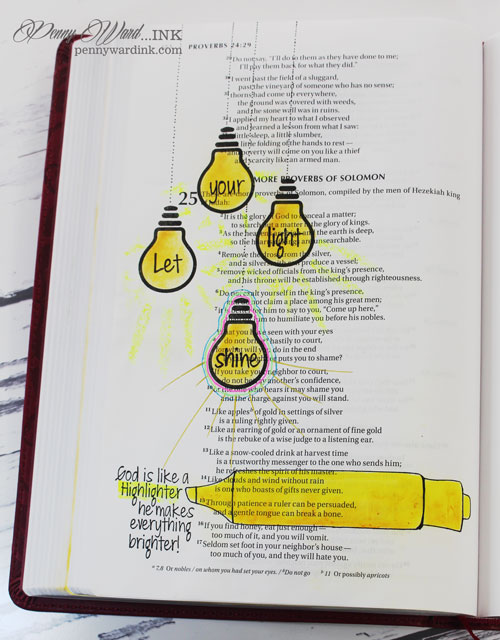 Penny Ward...INK
pennywardink.com
PROVERBS 24:29
29 Do not say, "I'll do to them as they have done to me;
I'll pay them back for what they did."
30 I went past the field of a sluggard,
past the vineyard of someone who has no sense;
31 thorns had come up everywhere,
the ground was covered with weeds,
and the stone wall was in ruins.
32 I applied my heart to what I observed
and learned a lesson from what I saw:
sleep, a little slumber,
little folding of the hands to rest—
and poverty will come on you like a thief
and scarcity like an armed man.
MORE PROVERBS OF SOLOMON
25
more proverbs of Solomon, compiled by the men of Hezekiah king
Judah:
2 It is the glory of God to conceal a matter;
to search a matter is the glory of kings.
3 As the heavens earth is deep,
so the hearts of kings are unsearchable.
4 Remove the dross from the silver,
and a silversmith produce a vessel;
5 remove wicked officials from the king's presence,
and his throne will be established through righteousness.
6 Do not exalt yourself in the king's presence,
claim a place among his great men;
7 it is him to say to you, "Come up here,"
than for him to humiliate you before his nobles.
What you have seen with your eyes
8 do not bring hastily to court,
for what will you do in the end
if your neighbor puts you to shame?
9 If you take your neighbor to court,
do not betray another's confidence,
10 or the one who hears it may shame you
and the charge against you will stand.
11 Like apples of gold in settings of silver
is a ruling rightly given.
12 Like an earring of gold or an ornament of fine gold
is the rebuke of a wise judge to a listening ear.
13 Like a snow-cooled drink at harvest time
is a trustworthy messenger to the one who sends him;
he refreshes the spirit of his master.
14 Like clouds and wind without rain
is one who boasts of gifts never given.
15 Through patience a ruler can be persuaded,
and a gentle tongue can break a bone.
16 If you find honey, eat just enough—
too much of it, and you will vomit.
17 Seldom set foot in your neighbor's house—
too much of you, and they will hate you.
a 7,8 Or nobles / on whom you had set your eyes. / 8 Do not go b 11 Or possibly apricots
Let
your
light
shine
God is like a
Highlighter
he makes
everything
brighter!